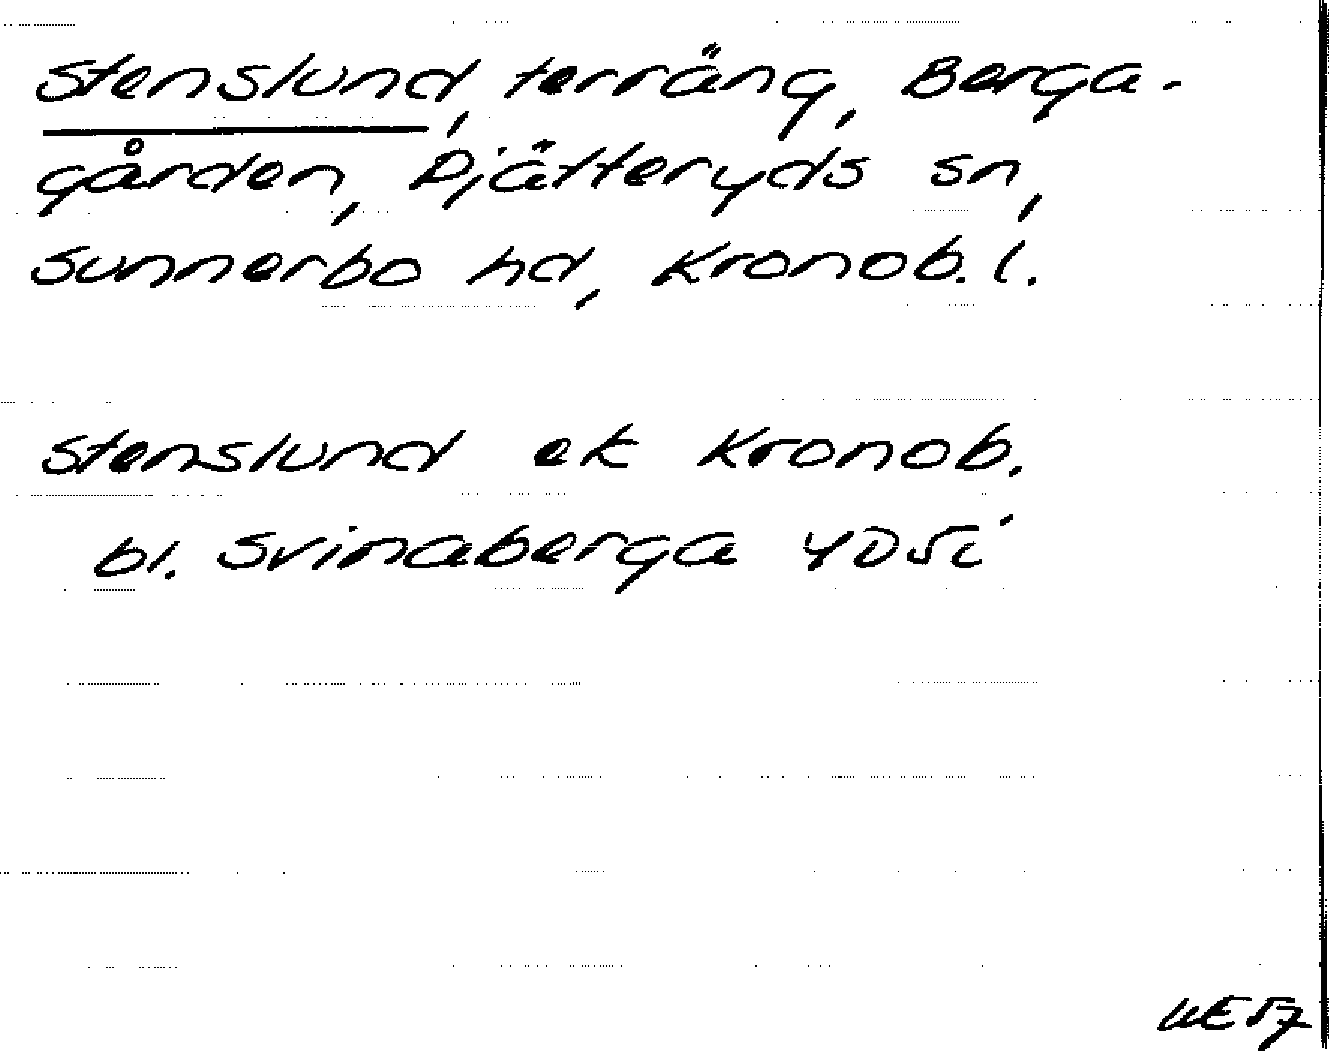 Stenslund, terräng, Berga-
gården, Pjätteryds sn,
Sunnerbo hd, Kronob. l.
Stenslund ek Kronob.
bl. Svinaberga 4D5i